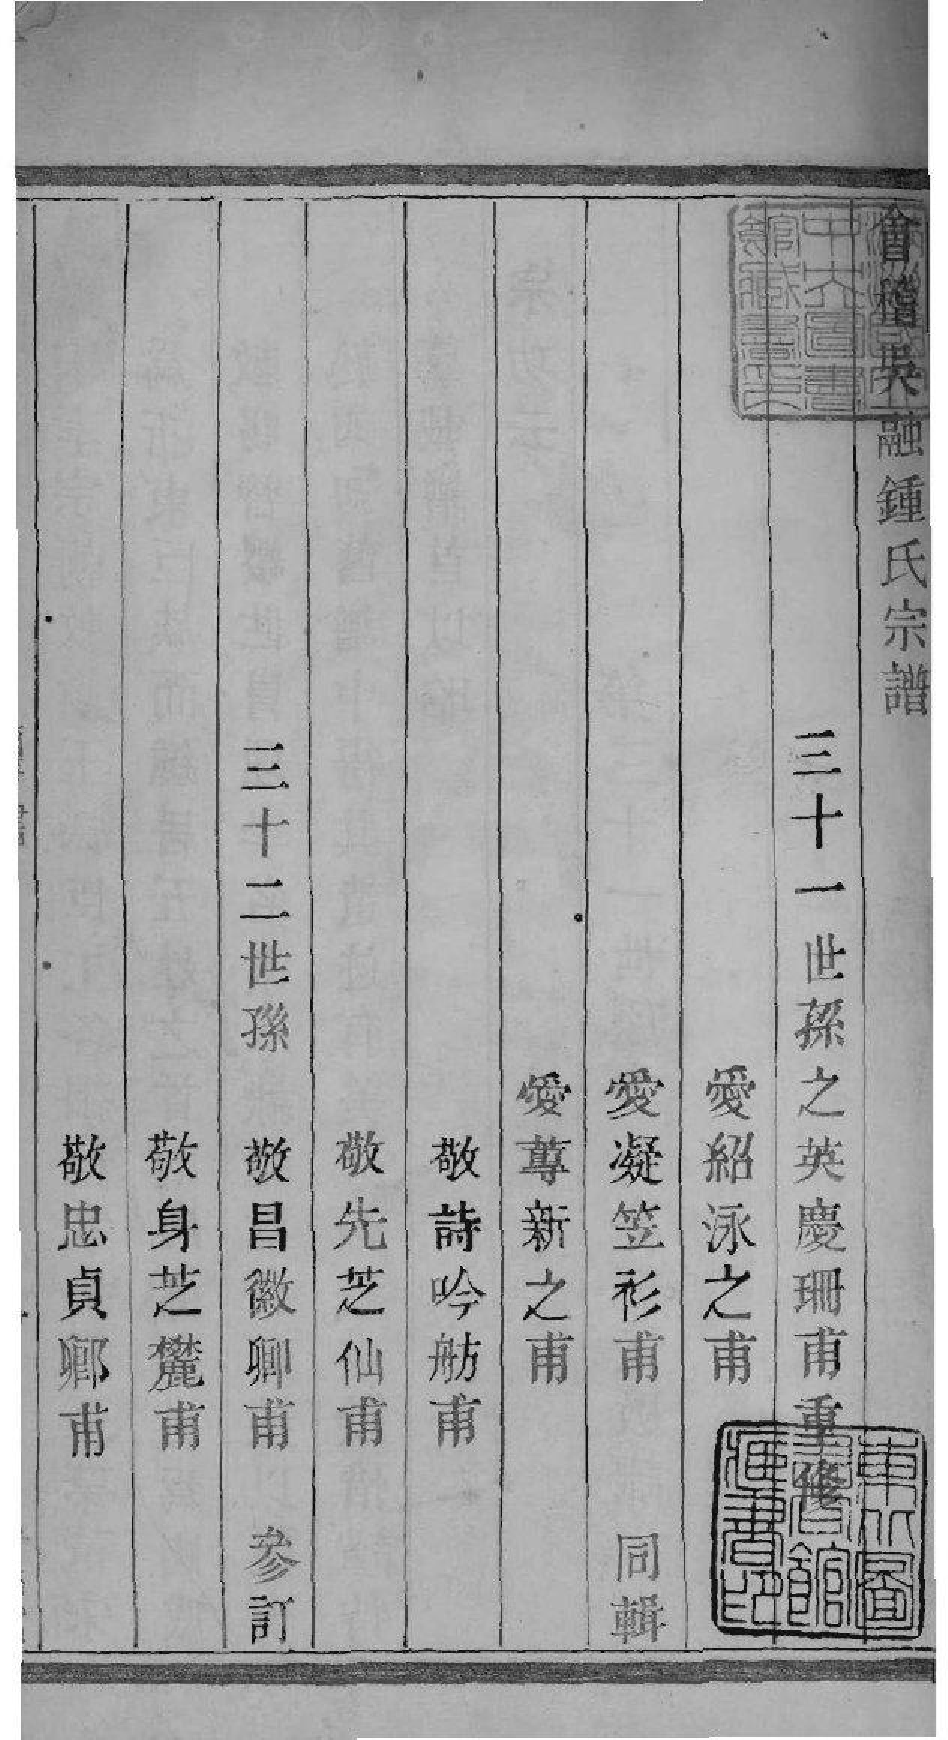 會稽吳融鍾氏宗譜
三十一世孫之英慶珊甫重修
愛紹泳之甫
愛凝笠衫甫 同輯
愛蓴新之甫
敬詩吟舫甫
敬先芝仙甫
三十二世孫 敬昌徽卿甫 參訂
敬身芝麓甫
敬忠貞卿甫